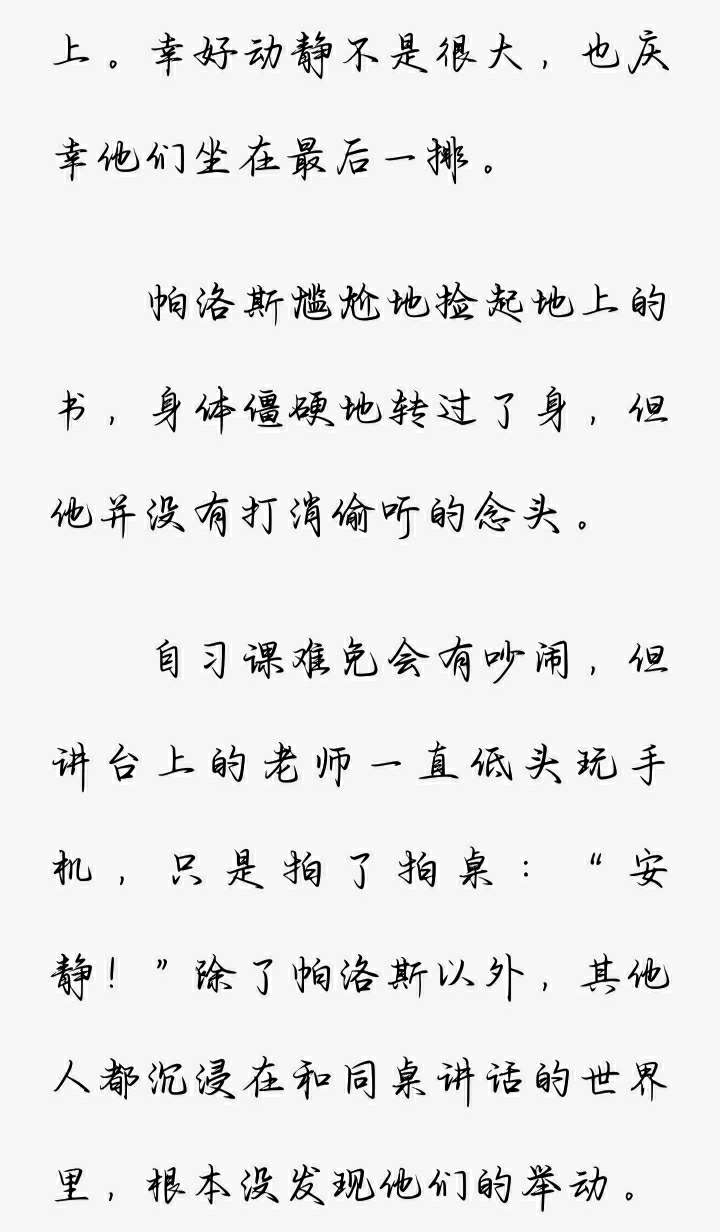 上。幸好动静不是很大，也庆
幸他们坐在最后一排。
帕洛斯尴尬地捡起地上的
书，身体僵硬地转过了身，但
他并没有打消偷听的念头。
自习课难免会有吵闹，但
讲台上的老师一直低头玩手
机，只是拍了拍桌：“安
静！”除了帕洛斯以外，其他
人都沉浸在和同桌讲话的世界
里，根本没发现他们的举动。